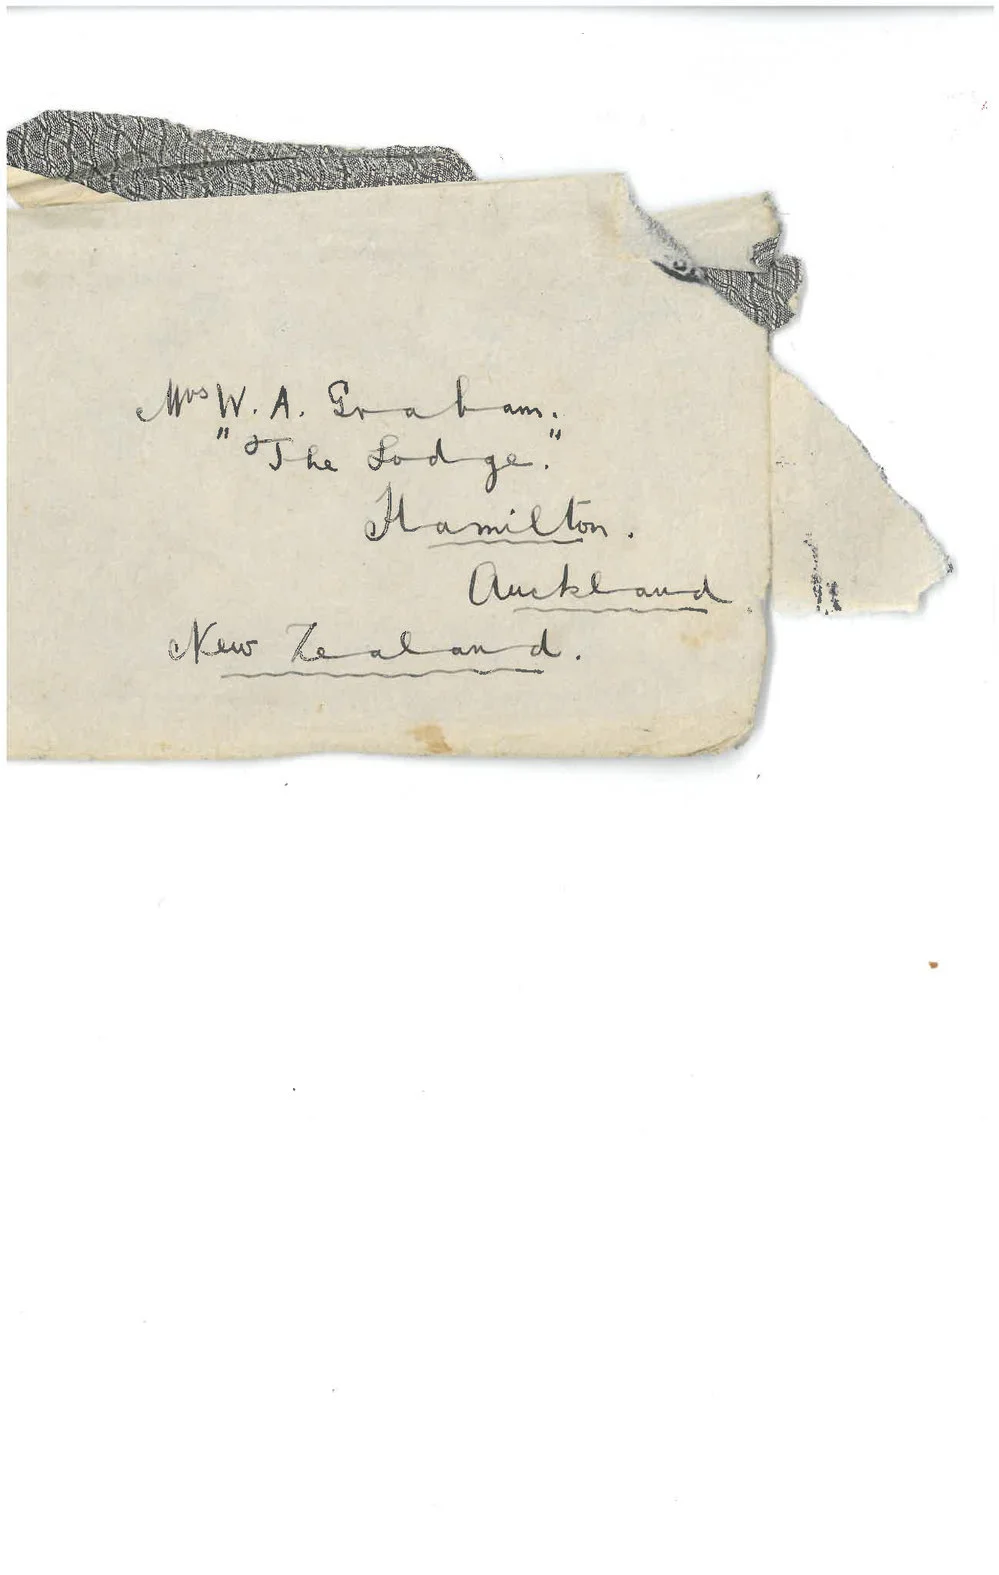 Mrs W. A. Graham.
"The Lodge."
Hamilton.
Auckland
New Zealand.